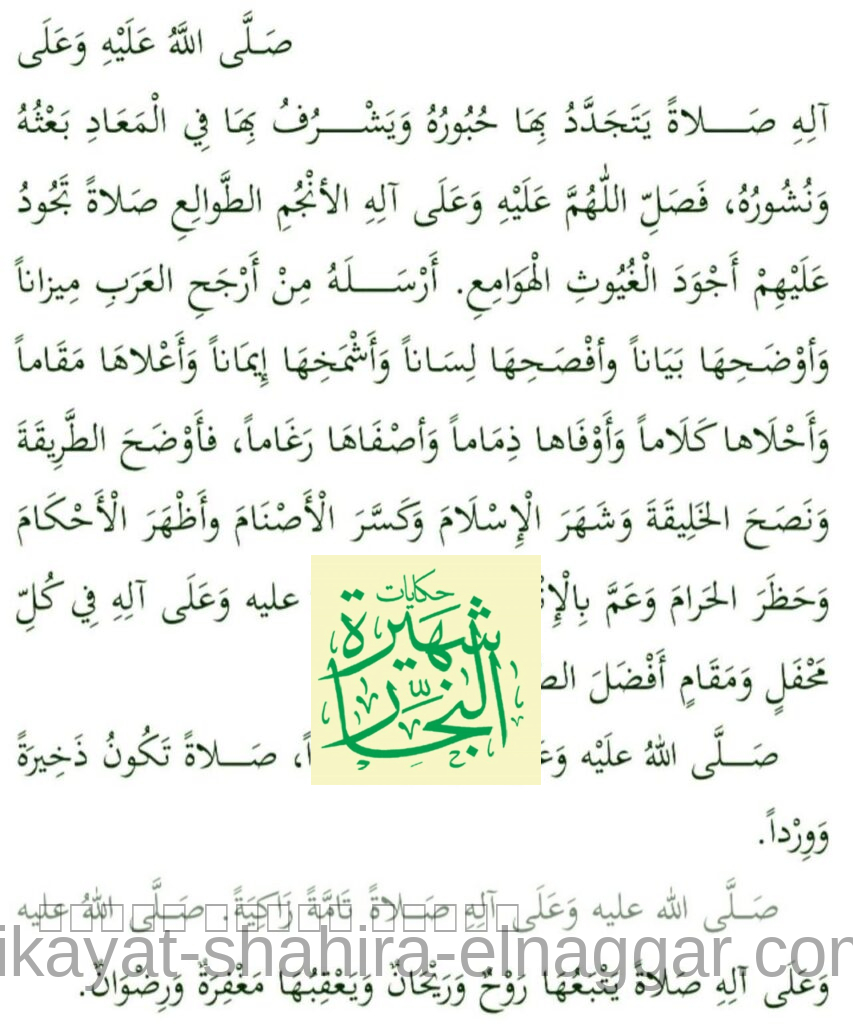 صَلَّى اللَّهُ عَلَيْهِ وَعَلَى
آلِهِ صَلاةً يَتَجَدَّدُ بِهَا حُبُورُهُ وَيَشْرُفُ بِهَا فِي الْمَعَادِ بَعْثُهُ
وَنُشُورُهُ، فَصَلِّ اللَّهُمَّ عَلَيْهِ وَعَلَى آلِهِ الأنْجُمِ الطَّوالِعِ صَلاةً تَجُودُ
عَلَيْهِمْ أَجْوَدَ الْغُيُوثِ الْهَوَامِعِ. أَرْسَلَهُ مِنْ أَرْجَحِ العَرَبِ مِيزاناً
وَأوْضَحِهَا بَيَاناً وأفْصَحِهَا لِسَاناً وَأَشْمَخِهَا إِيمَاناً وَأَعْلاهَا مَقَاماً
وَأَحْلَاها كَلَاماً وَأَوْفَاها ذِمَاماً وَأصْفَاهَا رَغَاماً، فأَوْضَحَ الطَّرِيقَةَ
وَنَصَحَ الخَلِيقَةَ وَشَهَرَ الْإِسْلَامَ وَكَسَّرَ الْأَصْنَامَ وأَظْهَرَ الْأَحْكَامَ
وَحَظَرَ الحَرامَ وَعَمَّ عليه وَعَلَى آلِهِ فِي كُلِّ
مَحْفَلٍ وَمَقَامٍ أَفْضَلَ
حكايات
شهيرة
النجار
صَلَّى اللهُ علَيْه صَلاةً تَكُونُ ذَخِيرَةً
وَوِرْداً.
صَلَّى الله عليه وَعَلَى آلِهِ صَلاةً تَامَّةً زَاكِيَةً. صَلَّى اللهُ عليه
ikayat-shahira-elnaggar.com
وَعَلَى آلِهِ صَلاةً يَتْبَعُهَا رَوْحٌ وَرَيْحَانٌ وَيَعْقِبُهَا مَغْفِرَةٌ وَرِضْوَانٌ.